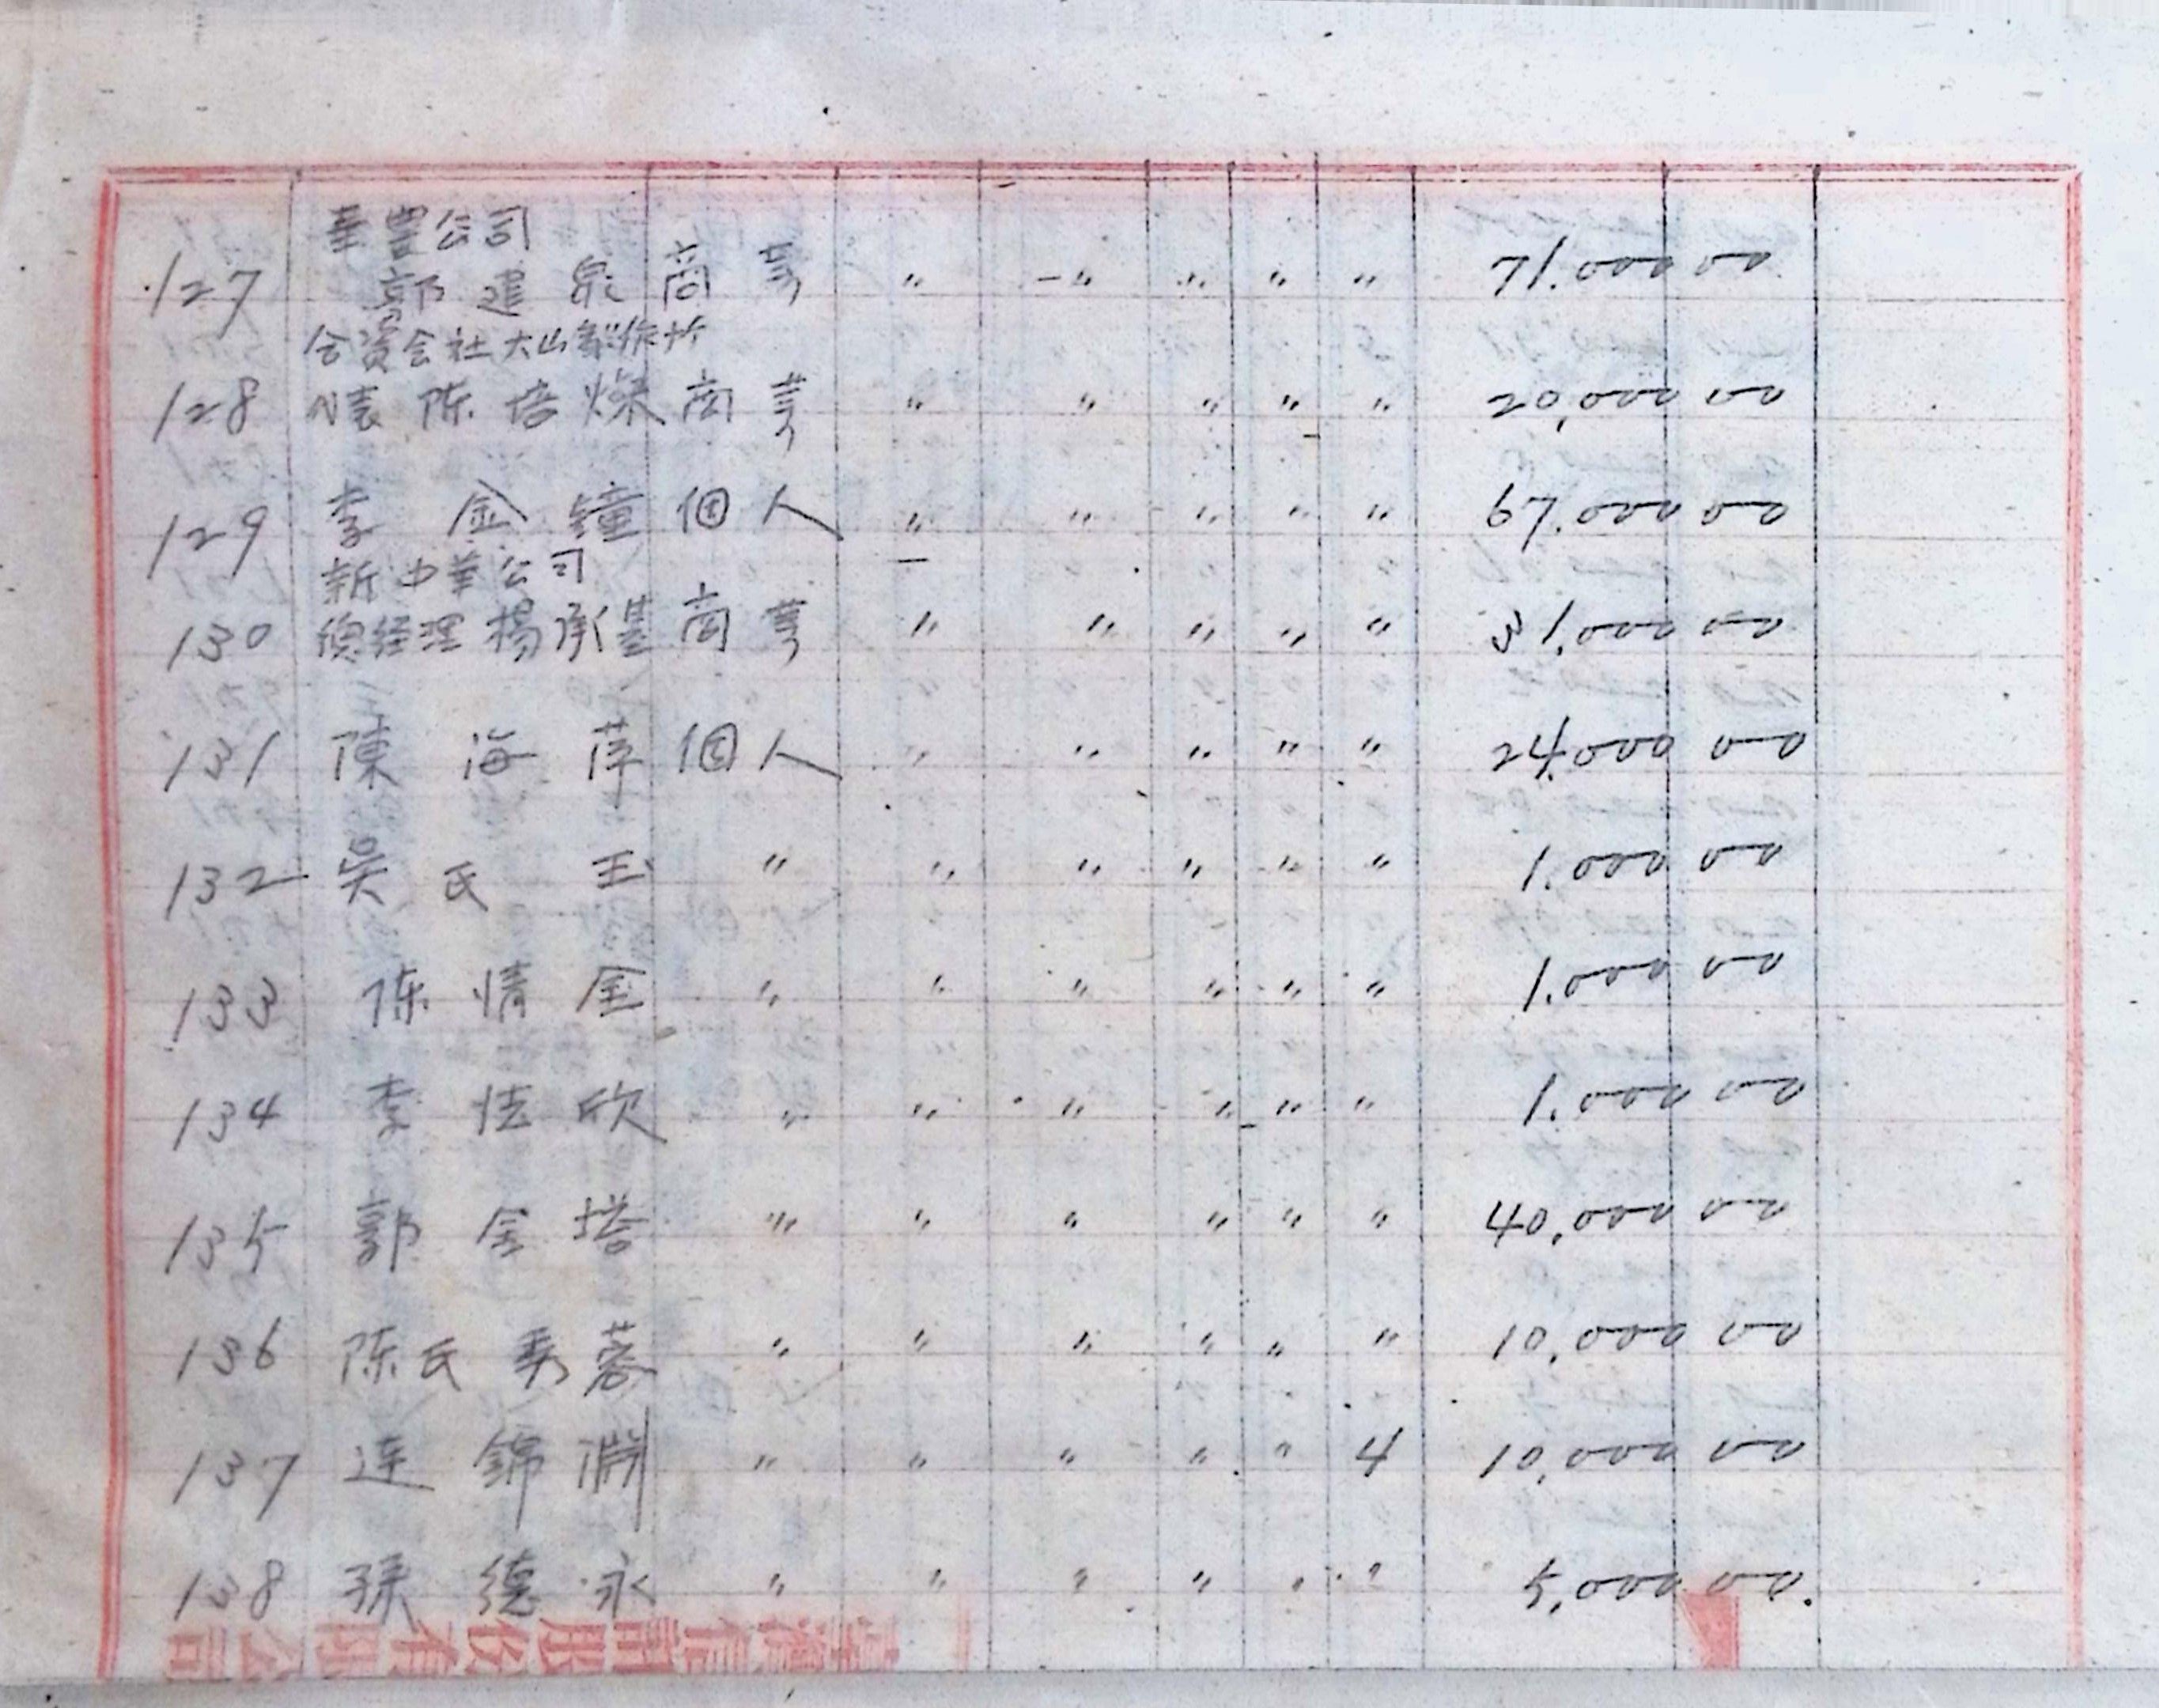 華豊公司
127 郭建泉 商業 〃 〃 〃 〃 〃 71.000 00
合資会社大山製作所
128 代表 陈培燦 商業 〃 〃 〃 〃 〃 20,000 00
129 李金鐘 個人 〃 〃 〃 〃 〃 67.000 00
新中華公司
130 總経理 楊承基 商業 〃 〃 〃 〃 〃 31,000 00
131 陳海萍 個人 〃 〃 〃 〃 〃 24,000 00
132 吳氏玉 〃 〃 〃 〃 〃 〃 1.000 00
133 陈情金 〃 〃 〃 〃 〃 〃 1.000 00
134 李欣 〃 〃 〃 〃 〃 〃 1.000 00
135 郭金塔 〃 〃 〃 〃 〃 〃 40,000 00
136 陈氏秀蓉 〃 〃 〃 〃 〃 〃 10,000 00
137 连錦淵 〃 〃 〃 〃 〃 4 10,000 00
138 孫德永 〃 〃 〃 〃 〃 〃 5,000 00
臺灣信託股份有限公司